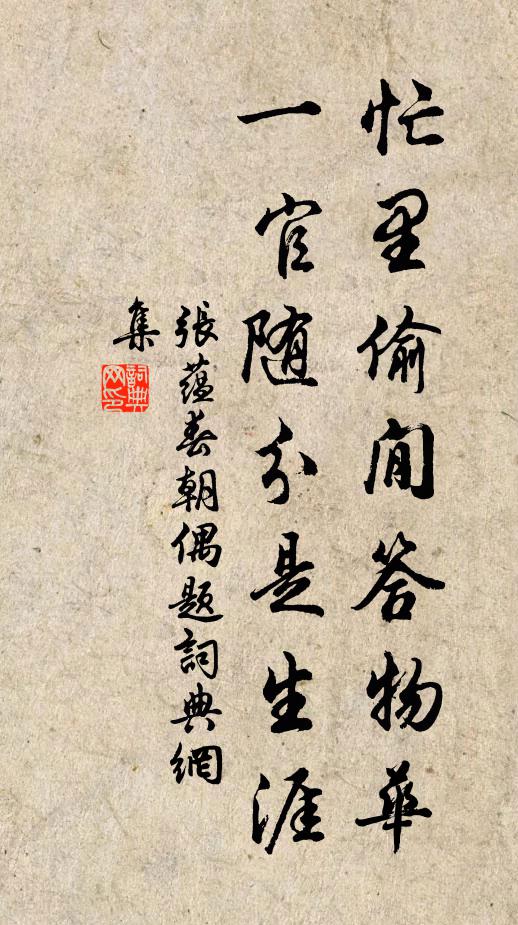 忙里偷閒答物華
一官随分是生涯
張蘊春朝偶题詞典網
集
詞典
网印